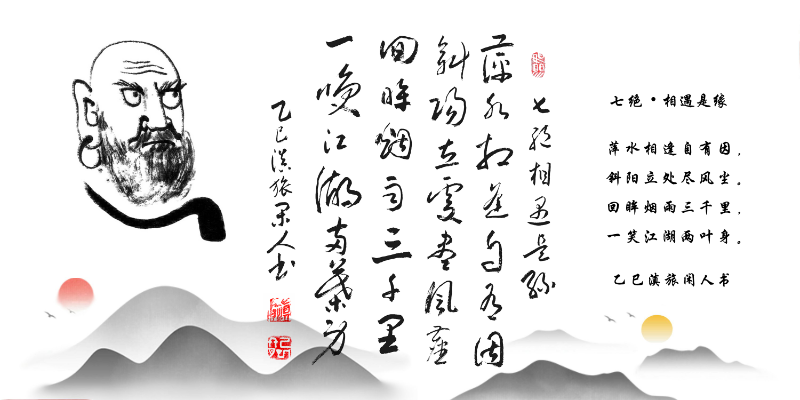 七绝·相遇是缘
萍水相逢自有因，
斜阳立处尽风尘。
回眸烟雨三千里，
一笑江湖两叶身。
乙巳滇旅闲人书
七绝相遇是缘
萍水相逢自有因
斜阳立处尽风尘
回眸烟雨三千里
一笑江湖两叶身
乙巳滇旅闲人书